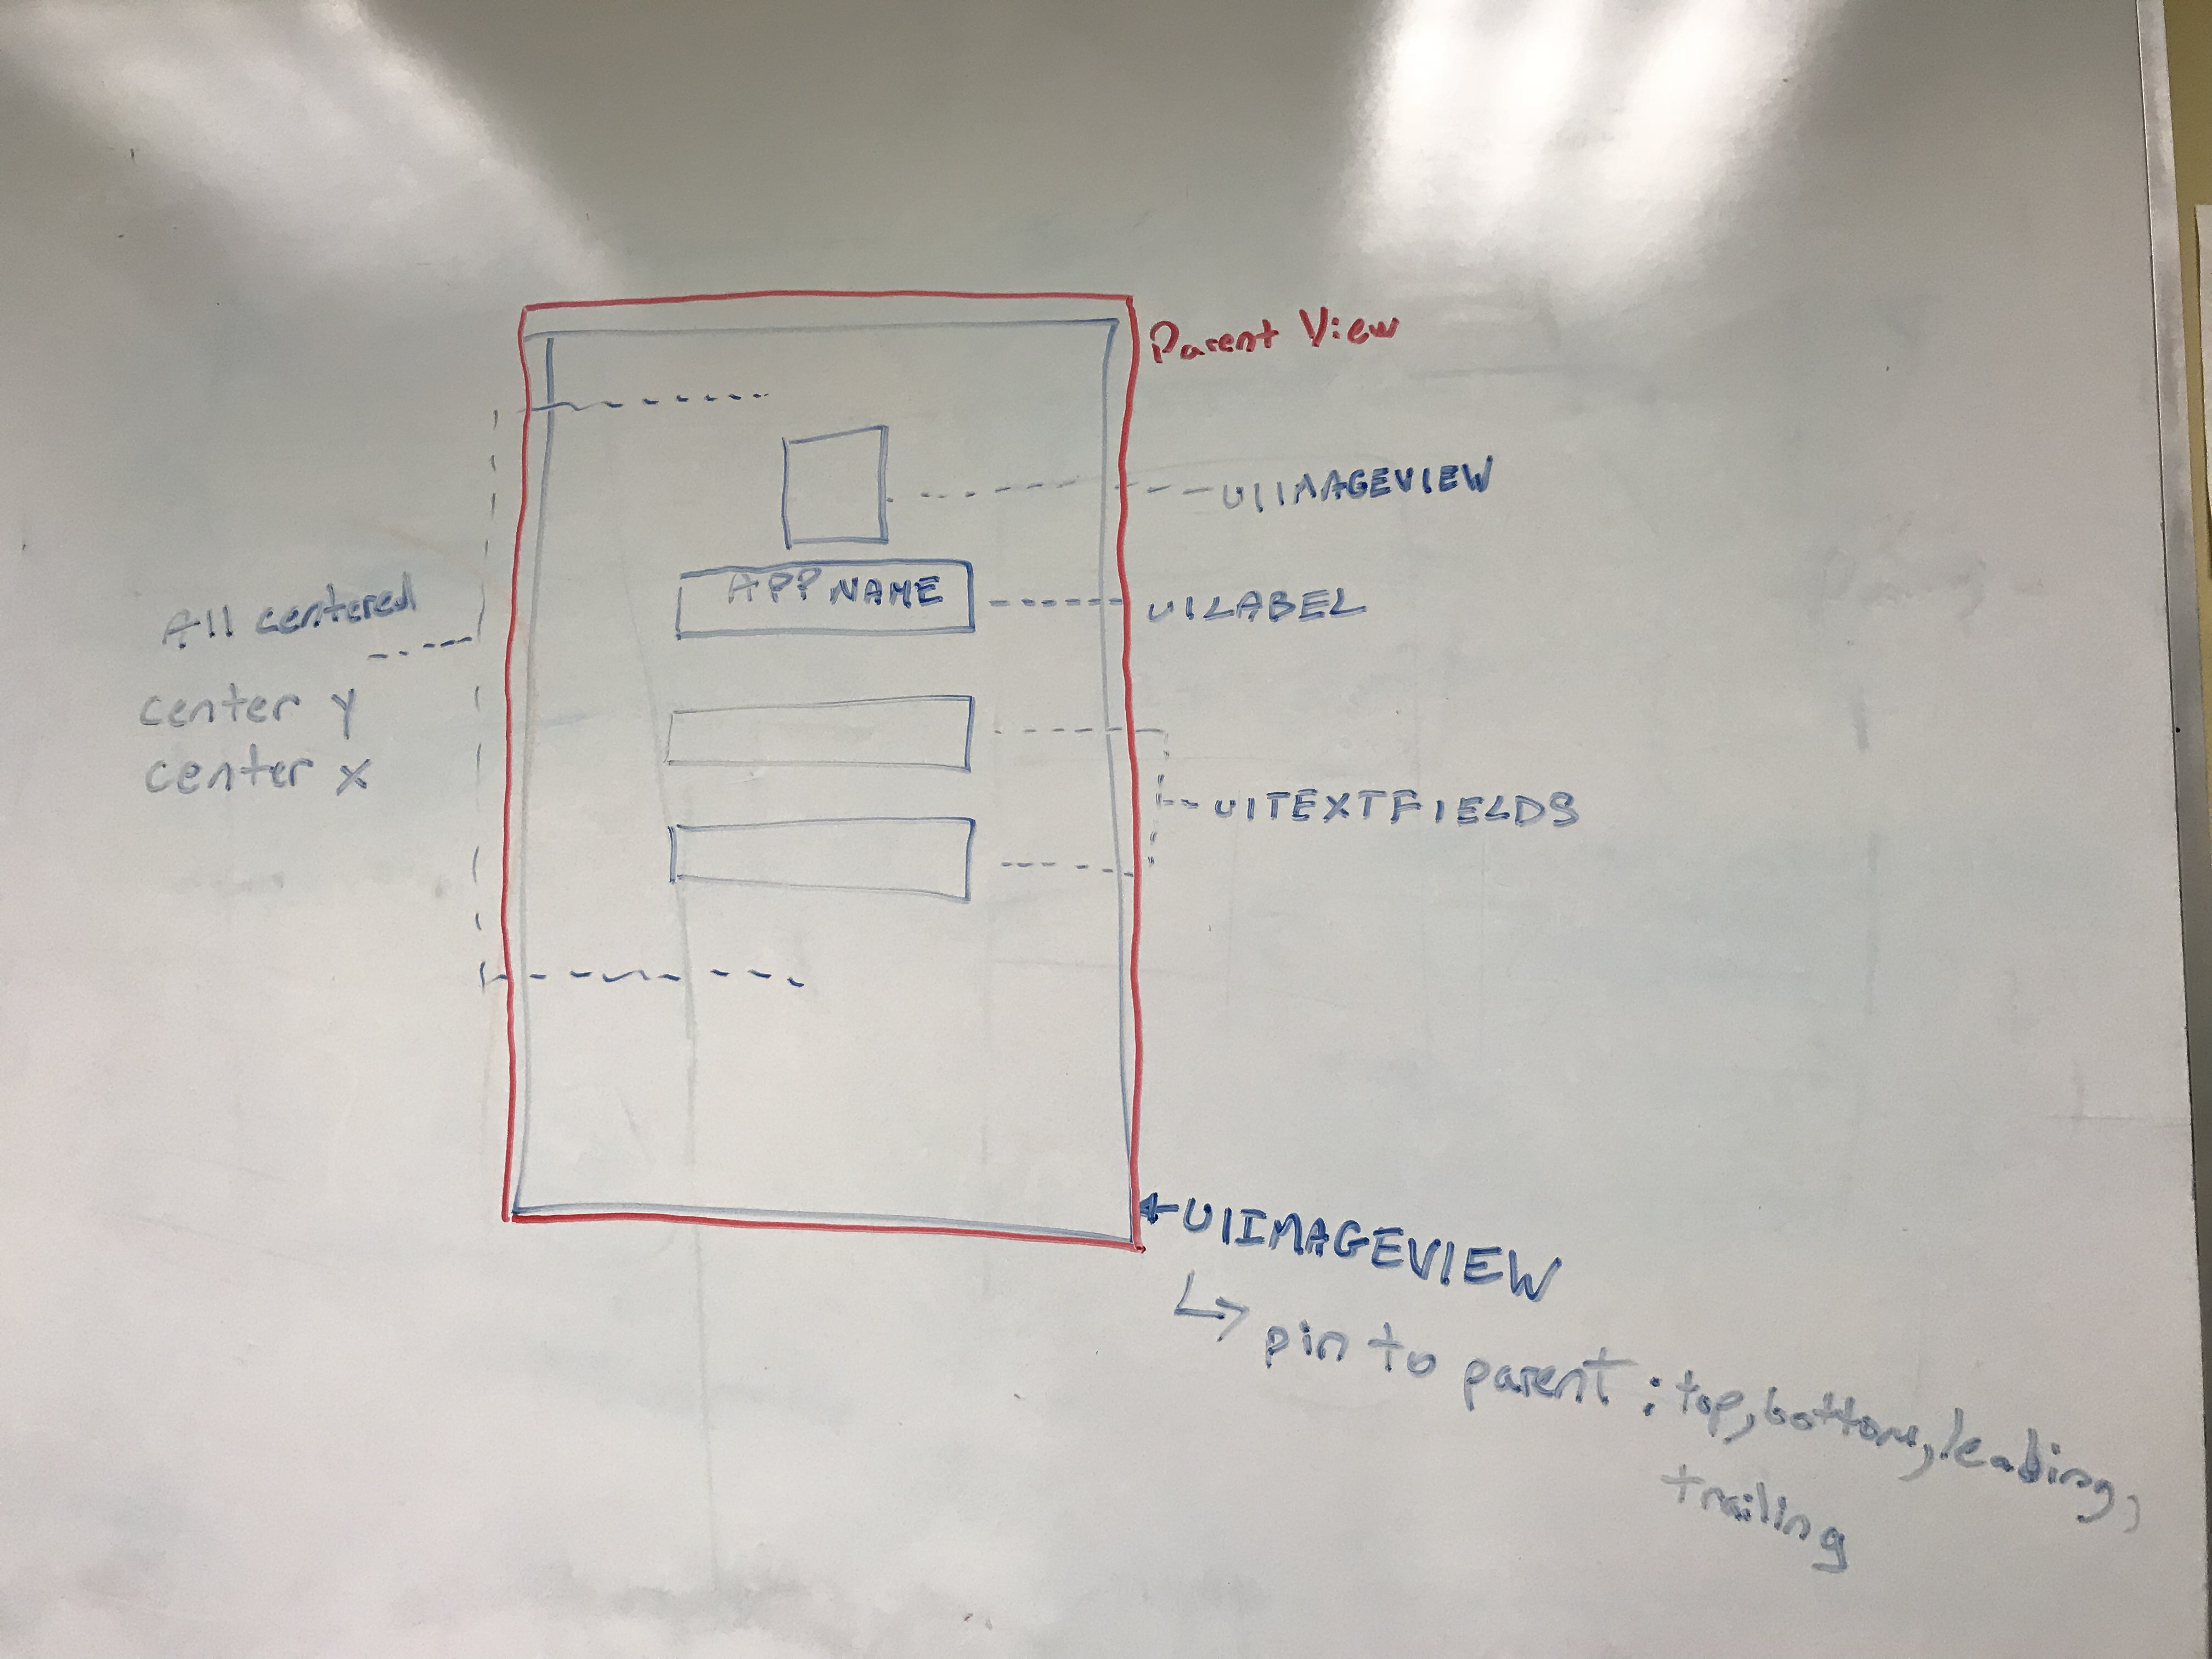 Parent View
UIIMAGEVIEW
APP NAME
UILABEL
All centered
center y
center x
UITEXTFIELDS
UIIMAGEVIEW
pin to parent : top, bottom, leading,
trailing